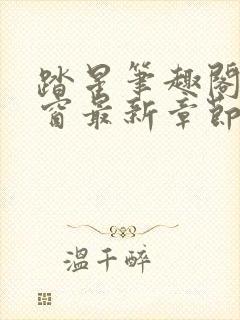 踏星笔趣阁
窗最新章節
温千醉